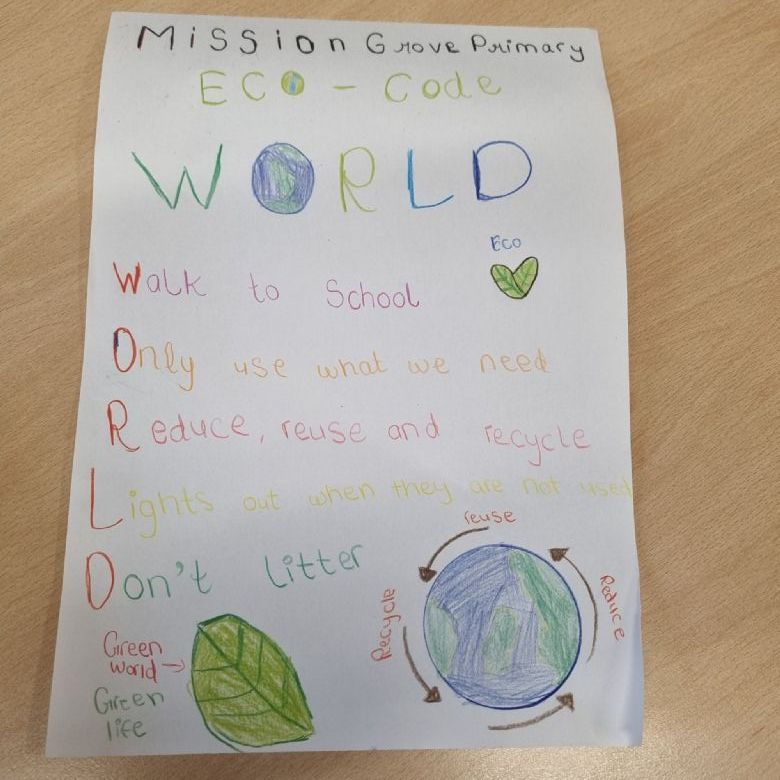 Mission Grove Primary
ECO - Code
WORLD
Eco
Walk to School
Only use what we need
Reduce, reuse and recycle
Lights out when they are not used
Don't litter
reuse
Reduce
Recycle
Green
world
Green
life